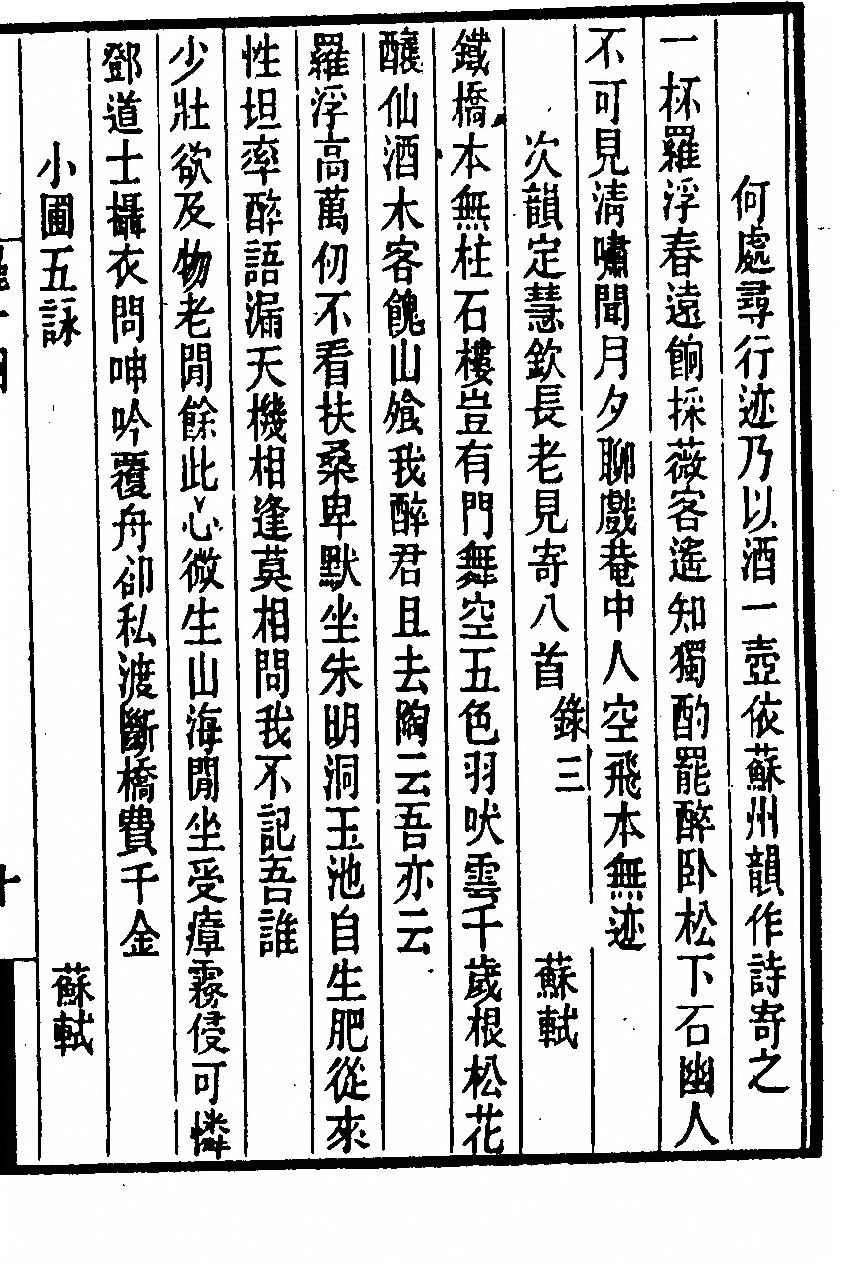 何處尋行迹乃以酒一壺依蘇州韻作詩寄之
一杯羅浮春遠餉採薇客遙知獨酌罷醉臥松下石幽人
不可見清嘯聞月夕聊戲菴中人空飛本無迹
次韻定慧欽長老見寄八首錄三 蘇軾
鐵橋本無柱石樓豈有門舞空五色羽吠雲千歲根松花
釀仙酒木客餽山飧我醉君且去陶云吾亦云
羅浮高萬仞不看扶桑卑默坐朱明洞玉池自生肥從來
性坦率醉語漏天機相逢莫相問我不記吾誰
少壯欲及物老閒餘此心微生山海閒坐受瘴霧侵可憐
鄧道士攝衣問呻吟覆舟卻私渡斷橋費千金
小圃五詠 蘇軾